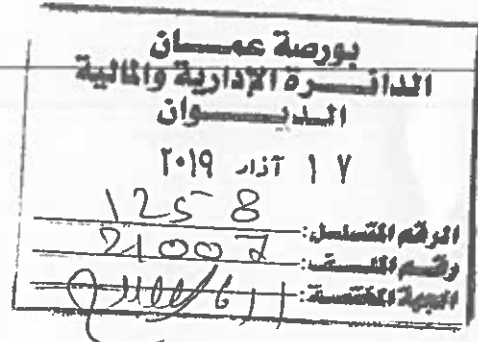 بورصة عمـــان
الدائـــرة الإدارية والمالية
الديـــوان
١٧ آذار ٢٠١٩
الرقم المتسلسل: 1258
رقم الملـــف: 21002
الجهة المختصة: